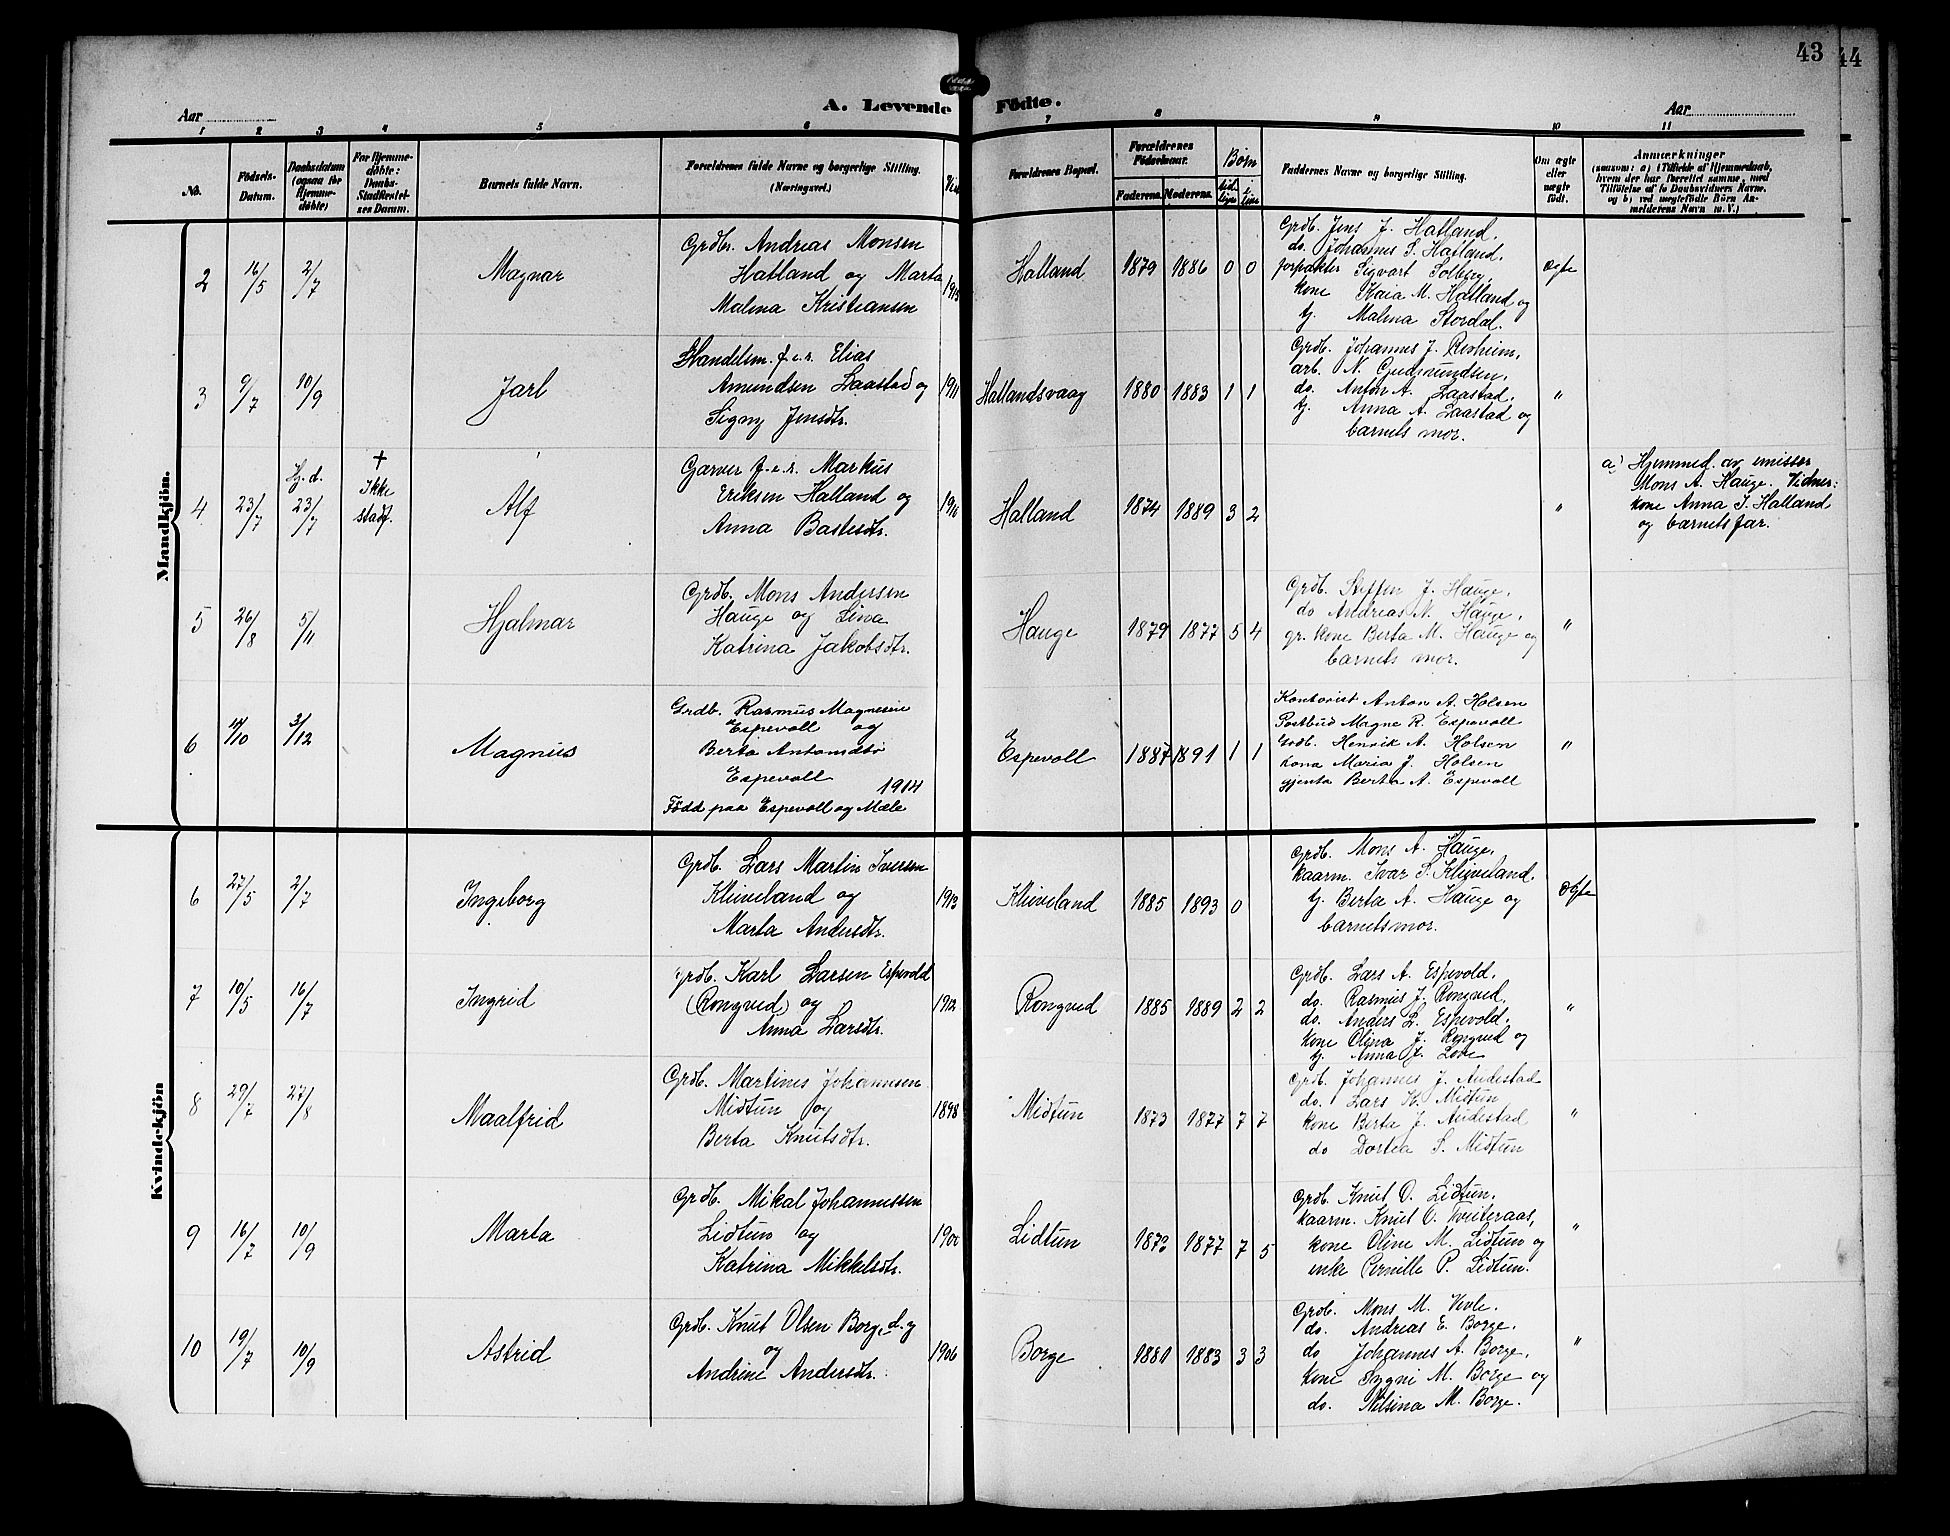 43
44
A. Levende Födte.
Aar
Aar
1 2 3 4 5 6 7 8 9 10 11
No.
Födsels-Datum.
Daabsdatum (ogsaa for Hjemmedöbte)
For Hjemmedöbte: Daabs-Stadfæstelses Datum.
Barnets fulde Navn.
Forældrenes fulde Navne og borgerlige Stilling. (Næringsvei.)
Forældrenes Bopæl.
Forældrenes Födselsaar.
Faderens. Moderens.
Börn
Faddernes Navne og borgerlige Stilling.
Om ægte eller uægte födt.
Anmærkninger
(saasom: a) Tilfælde af Hjemmedaab, hvem der har forrettet samme, med Tilföielse af to Daabsvidners Navne, og b) ved uægtefödte Börn Anmelderens Navn m. V.)
Mandkjön.
2 16/5 2/7 Magnar
Grdbr. Andreas Monsen
Hatland og Marta
Malena Kristiansen
1915
Halland 1879 1886 0 0
Grdb. Jens J. Hatland.
do. Johannes S. Hatland.
forpakter Sigvart Solberg,
kone Kaia M. Hatland og
tj. Malena Stordal.
ægte
3 9/7 10/9 Jarl
Handelsm. f.e.r. Elias
Amundsen Laastad og
Signy Jensdtr.
1911
Hallandsvaag 1880 1883 1 1
Grdb. Johannes J. Risheim.
arb. N. Gudmundsen.
do. Anton A. Laastad.
tj. Anna A. Laastad og
barnets mor.
"
4 23/7 Hj.d. 23/7 + Ikke stadf. Alf
Garver f.e.r. Markus
Eriksen Halland og
Anna Bastesdtr.
1910
Halland 1874 1889 3 2
"
a) Hjemmed. av emissær
Mons A. Hauge. Vidner:
kone Anna I. Halland
og barnets far.
5 26/8 5/11 Hjalmar
Grdb. Mons Andersen
Hauge og Lina
Katrina Jakobsdtr.
Hauge 1879 1877 5 4
Grdb. Steffen J. Hauge.
do Andreas N. Hauge.
gr. kone Berta M. Hauge og
barnets mor.
"
6 14/10 3/12 Magnus
Grdb. Rasmus Magnesen
Espevoll og
Berta Antonsdtr
Espevoll 1914
Född paa Espevoll og Mæle
Espevoll 1887 1891 1 1
Kontorist Anton A. Holsen
Postbud Magne R. Espevoll
Grdb. Henrik A. Holsen
Kona Maria J. Holsen
gjenta Berta A. Espevoll
"
Kvindekjön
6 27/5 2/7 Ingeborg
Grdb. Lars Martin Iversen
Kleiveland og
Marta Andersdtr.
1913
Kleiveland 1885 1893 0
Grdb. Mons A. Hauge.
kaarm. Ivar S. Kleiveland.
tj. Berta A. Hauge og
barnets mor.
ægte
7 10/5 16/7 Ingrid
Grdb. Karl Larsen Espevold
(Rongved) og
Anna Larsdtr.
1912
Rongved 1885 1889 2 2
Grdb. Lars A. Espevold.
do. Rasmus J. Rongved.
do. Anders L. Espevold.
kone Olina J. Rongved og
tj. Anna J. Love
"
8 29/7 27/8 Maalfrid
Grdb. Martines Johannesen
Midtun og
Berta Knutsdtr.
1898
Midtun 1873 1877 7 7
Grdb. Johannes J. Audestad
do. Lars K. Midtun
kone Berta J. Audestad
do Dortea S. Midtun
"
9 16/7 10/9 Marta
Grdb. Mikal Johannessen
Lidtun og
Katrina Mikkelsdtr.
1900
Lidtun 1877 7 5
Grdb. Knut O. Lidtun.
kaarm. Knut O. Kviteraas,
kone Oline M. Lidtun og
enke Pernille P. Lidtun.
"
10 19/7 10/9 Astrid
Grdb. Knut Olsen Borge d.y
og
Andrine Andersdtr.
1906
Borge 1881 1883 3 3
Grdb. Mons M. Vevle.
do. Andreas E. Borge.
do Johannes A. Borge.
kone Sygni M. Borge og
do. Nilsina M. Borge.
"